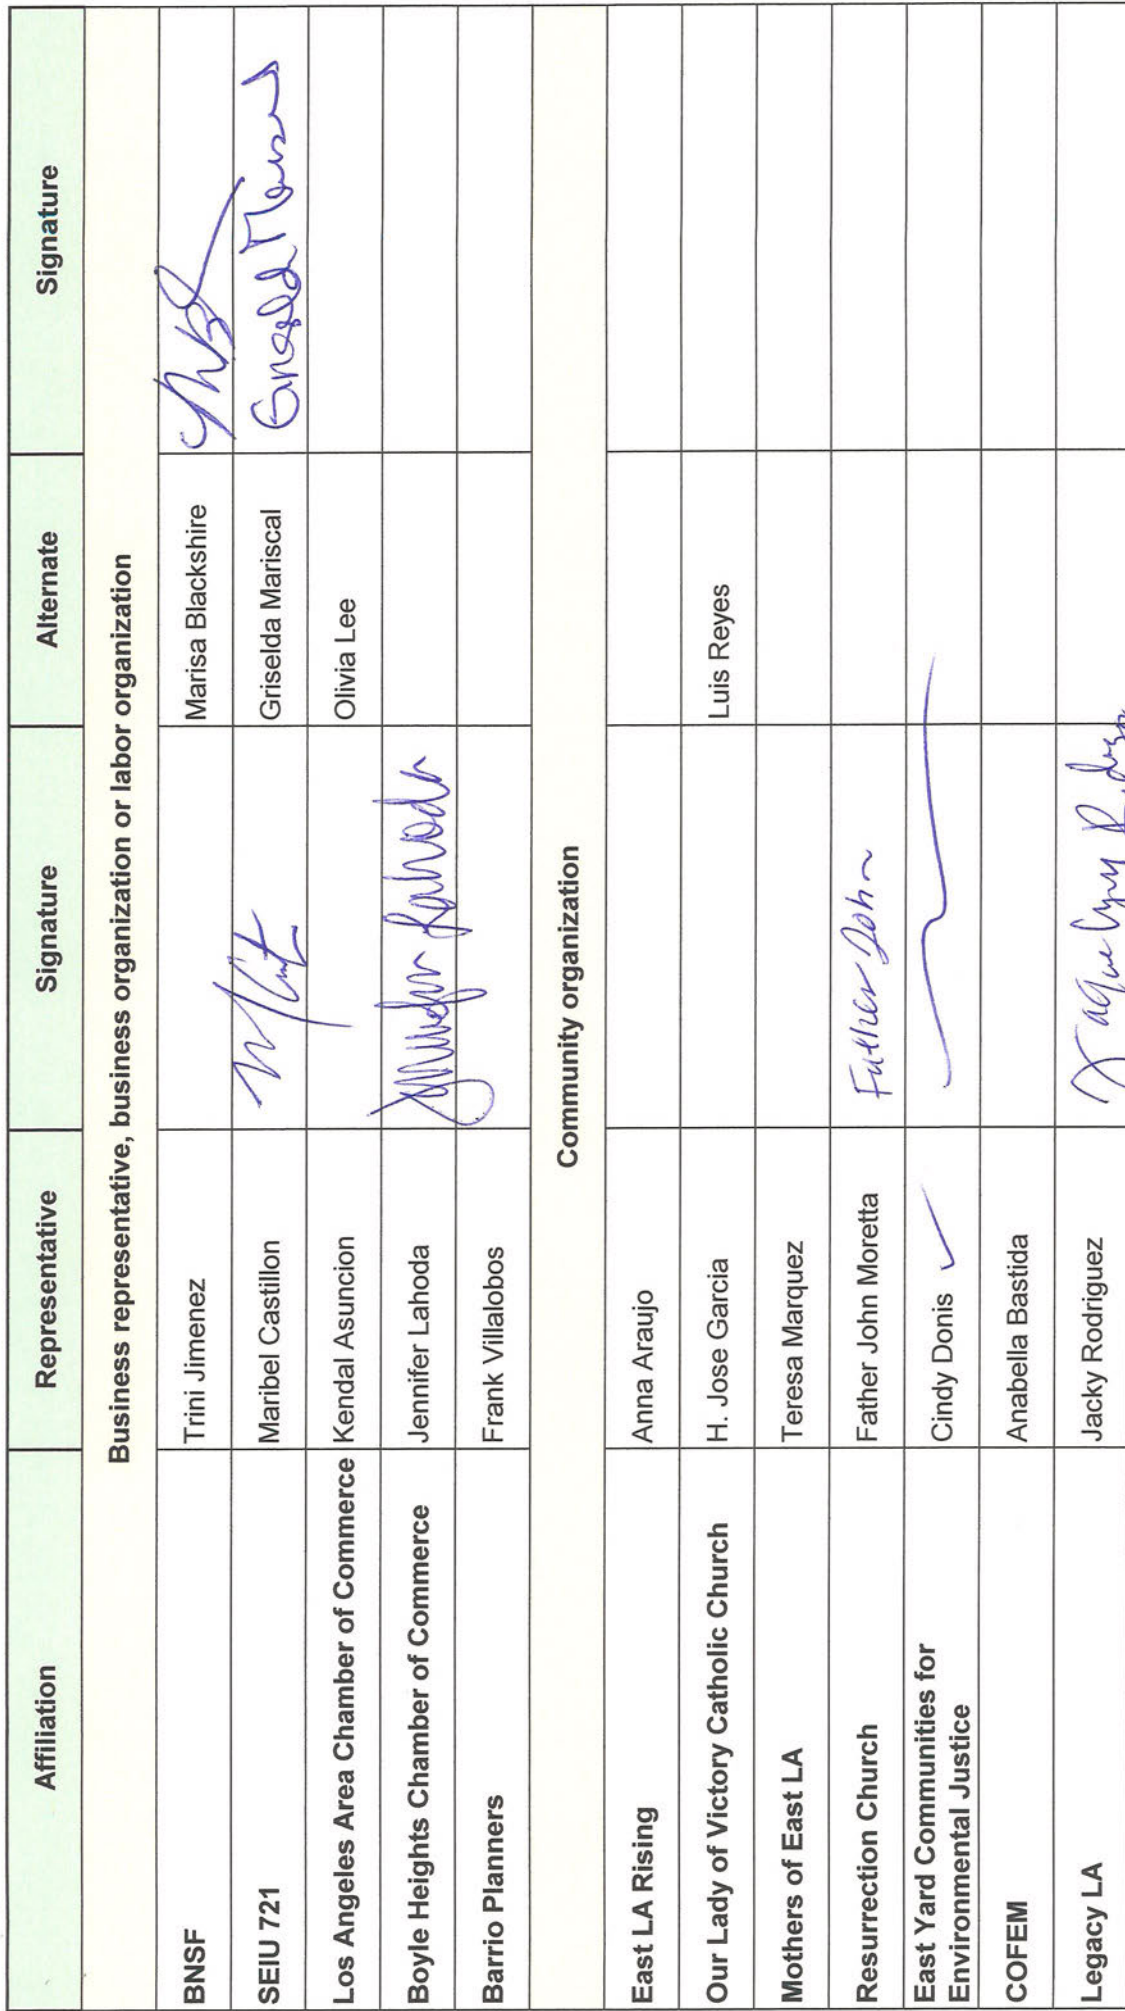 Affiliation Representative Signature Alternate Signature
Business representative, business organization or labor organization
BNSF Trini Jimenez Marisa Blackshire
SEIU 721 Maribel Castillon Griselda Mariscal
Los Angeles Area Chamber of Commerce Kendal Asuncion Olivia Lee
Boyle Heights Chamber of Commerce Jennifer Lahoda Jennifer Lahoda
Barrio Planners Frank Villalobos
Community organization
East LA Rising Anna Araujo
Our Lady of Victory Catholic Church H. Jose Garcia Luis Reyes
Mothers of East LA Teresa Marquez
Resurrection Church Father John Moretta Father John
East Yard Communities for
Environmental Justice Cindy Donis
COFEM Anabella Bastida
Legacy LA Jacky Rodriguez